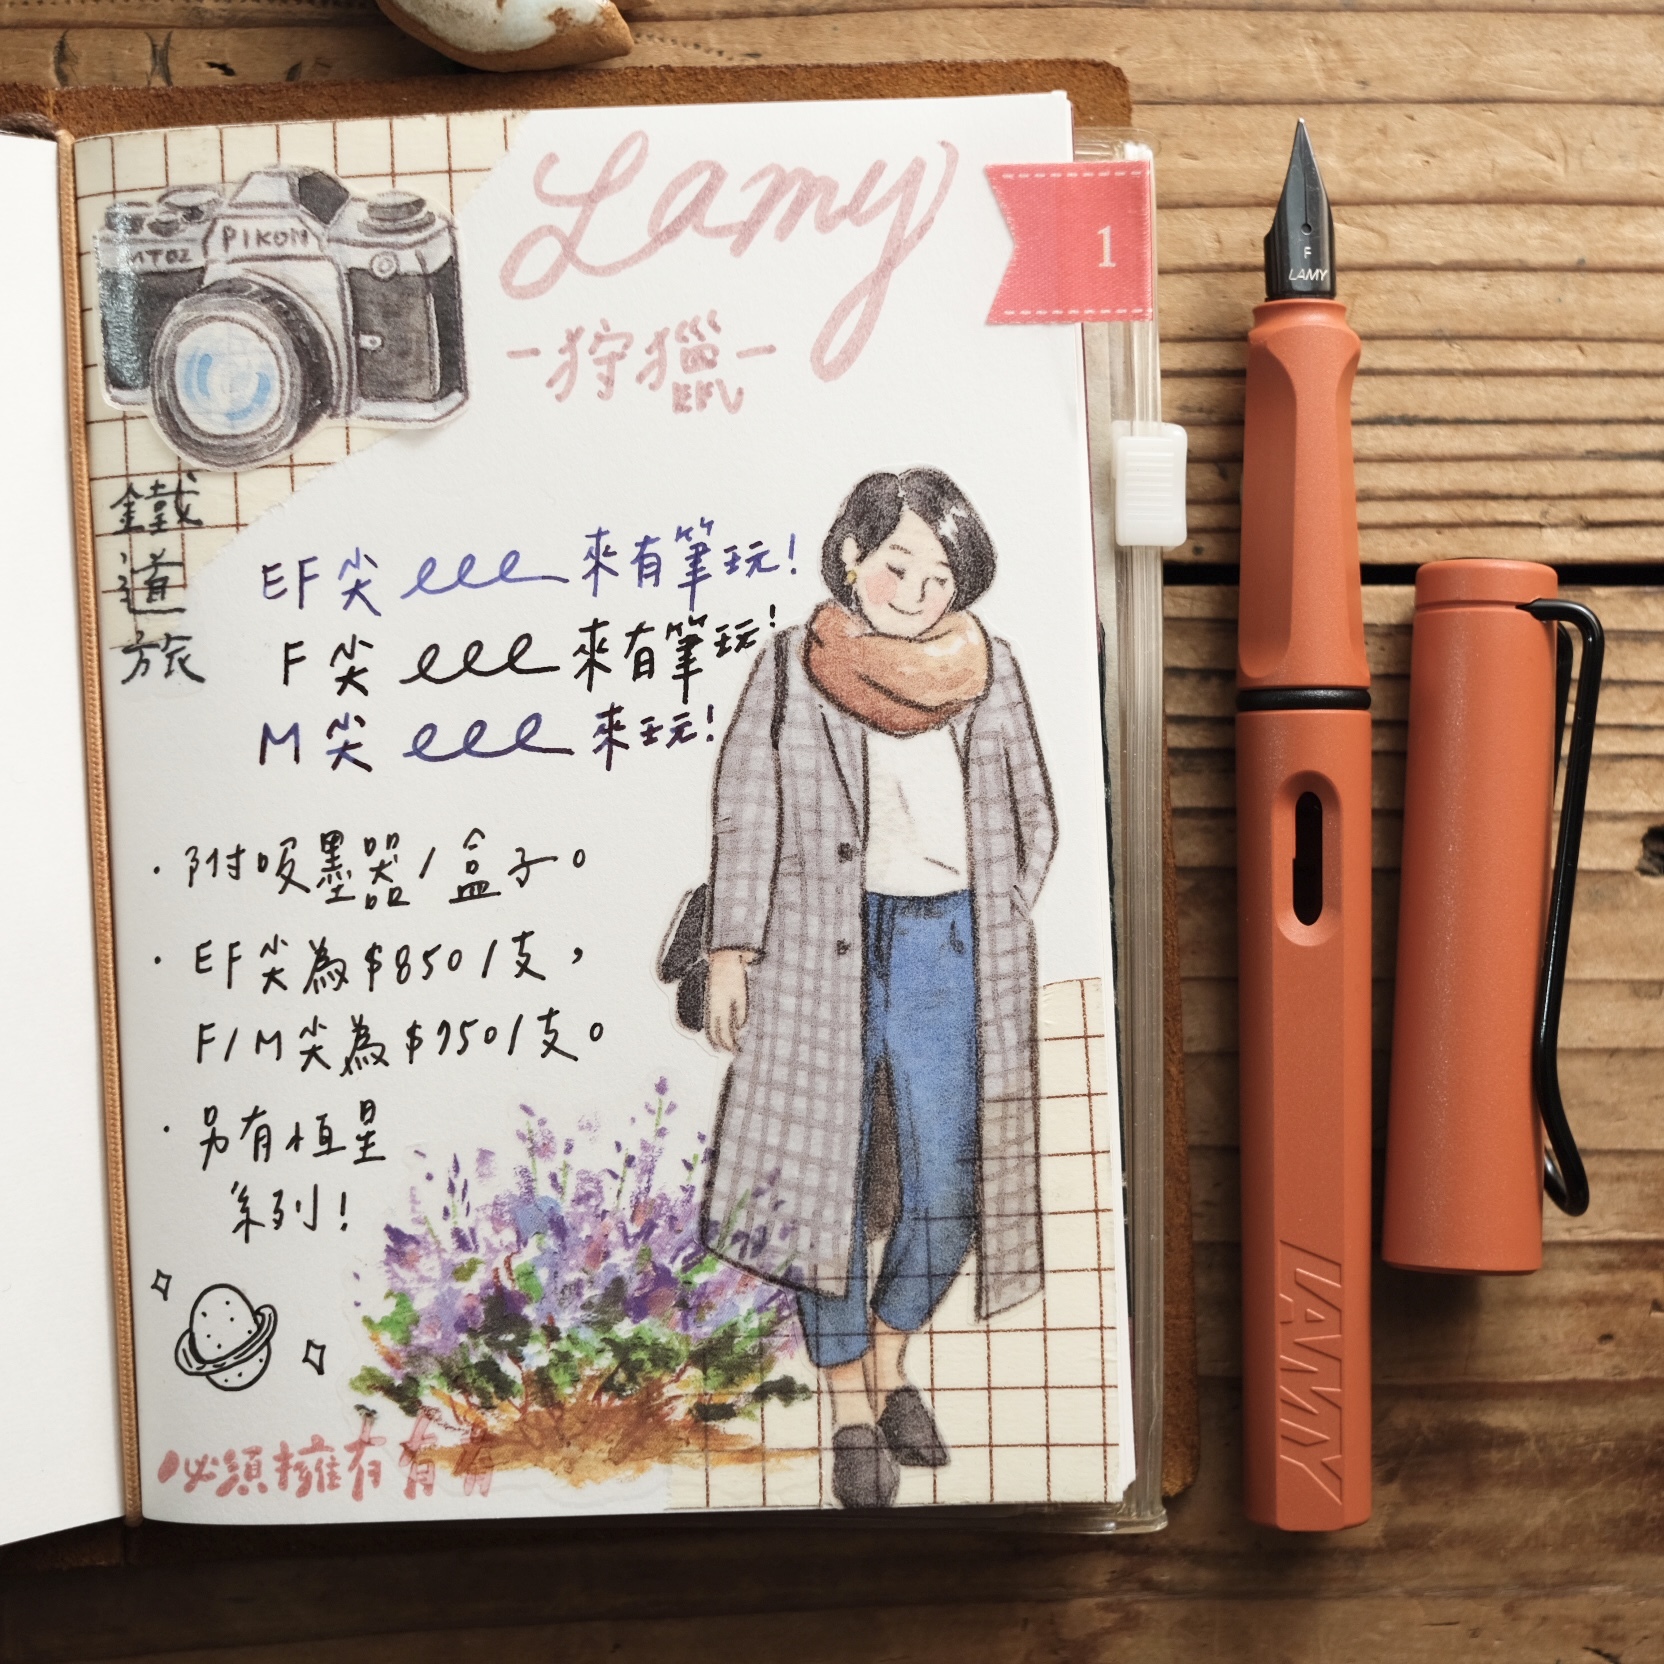 Lamy
-狩獵-
EFV
1
PIKON
MT02
鐵
道
旅
EF尖 ℓℓℓ 來有筆玩!
F尖 ℓℓℓ 來有筆玩!
M尖 ℓℓℓ 來玩!
·附吸墨器/盒子。
·EF尖為$850/支,
F/M尖為$950/支。
·另有恒星
系列!
必須擁有有有
F
LAMY
LAMY